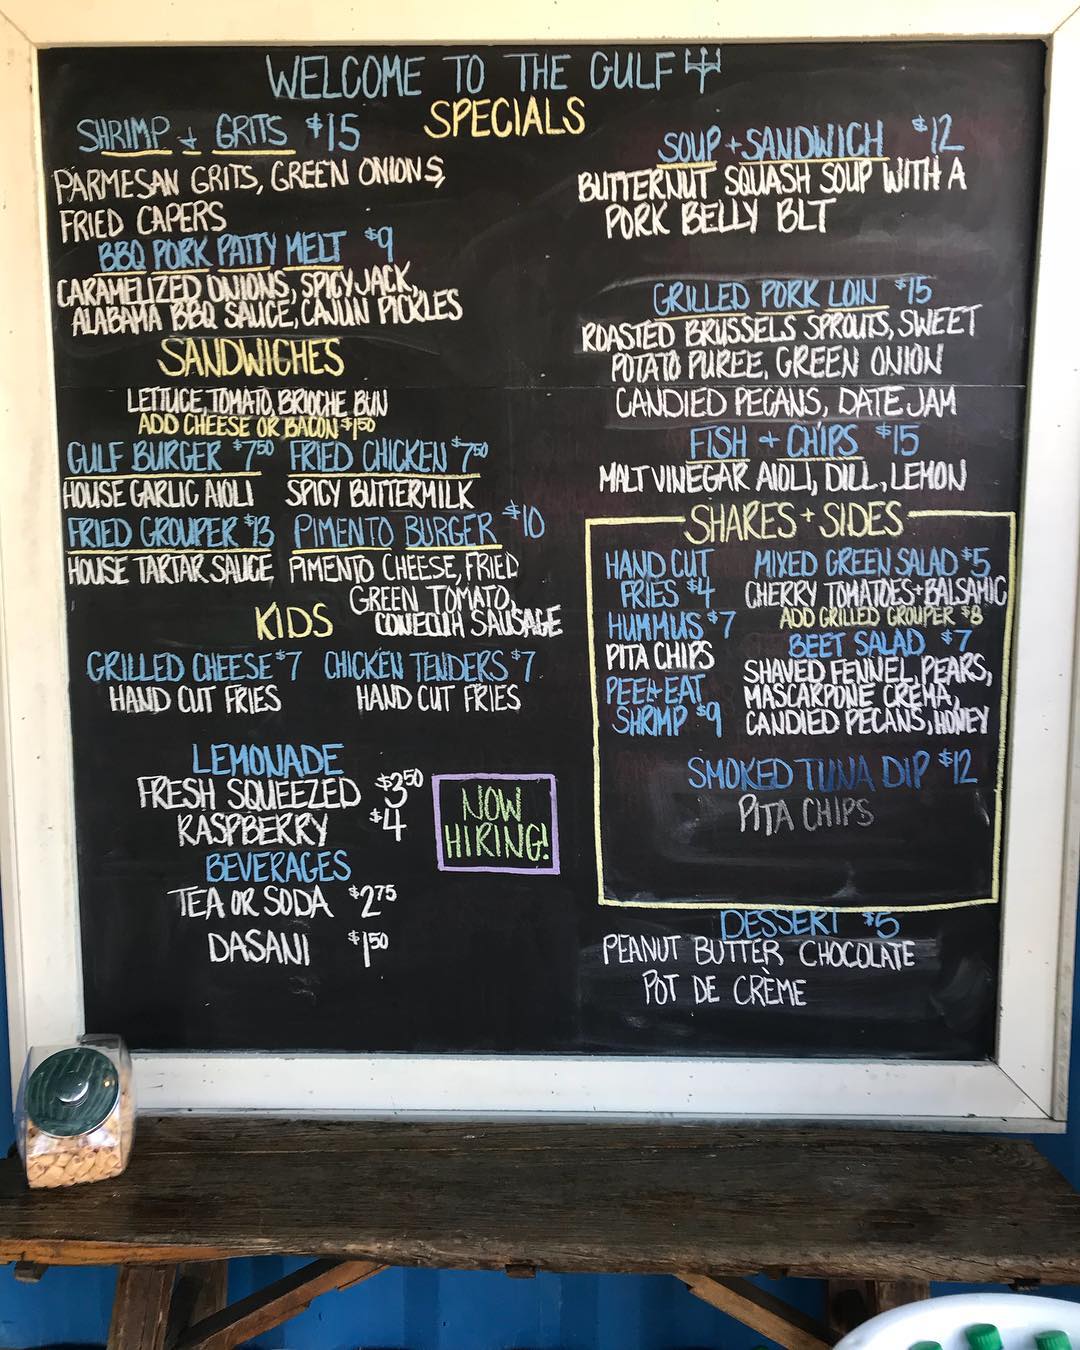 WELCOME TO THE GULF
SPECIALS
SHRIMP + GRITS $15
PARMESAN GRITS, GREEN ONIONS,
FRIED CAPERS
BBQ PORK PATTY MELT $9
CARAMELIZED ONIONS, SPICY JACK,
ALABAMA BBQ SAUCE, CAJUN PICKLES
SANDWICHES
LETTUCE, TOMATO, BRIOCHE BUN
ADD CHEESE OR BACON $1.50
GULF BURGER $7.50 FRIED CHICKEN $7.50
HOUSE GARLIC AIOLI SPICY BUTTERMILK
FRIED GROUPER $13 PIMENTO BURGER $10
HOUSE TARTAR SAUCE PIMENTO CHEESE, FRIED
GREEN TOMATO,
CONECUH SAUSAGE
KIDS
GRILLED CHEESE $7 CHICKEN TENDERS $7
HAND CUT FRIES HAND CUT FRIES
LEMONADE
FRESH SQUEEZED $3.50
RASPBERRY $4
BEVERAGES
TEA OR SODA $2.75
DASANI $1.50
NOW
HIRING!
SOUP + SANDWICH $12
BUTTERNUT SQUASH SOUP WITH A
PORK BELLY BLT
GRILLED PORK LOIN $15
ROASTED BRUSSELS SPROUTS, SWEET
POTATO PUREE, GREEN ONION
CANDIED PECANS, DATE JAM
FISH + CHIPS $15
MALT VINEGAR AIOLI, DILL, LEMON
SHARES + SIDES
HAND CUT
FRIES $4
HUMMUS $7
PITA CHIPS
PEEL + EAT
SHRIMP $9
MIXED GREEN SALAD $5
CHERRY TOMATOES + BALSAMIC
ADD GRILLED GROUPER $8
BEET SALAD $7
SHAVED FENNEL, PEARS,
MASCARPONE CREMA,
CANDIED PECANS, HONEY
SMOKED TUNA DIP $12
PITA CHIPS
DESSERT $5
PEANUT BUTTER CHOCOLATE
POT DE CRÈME